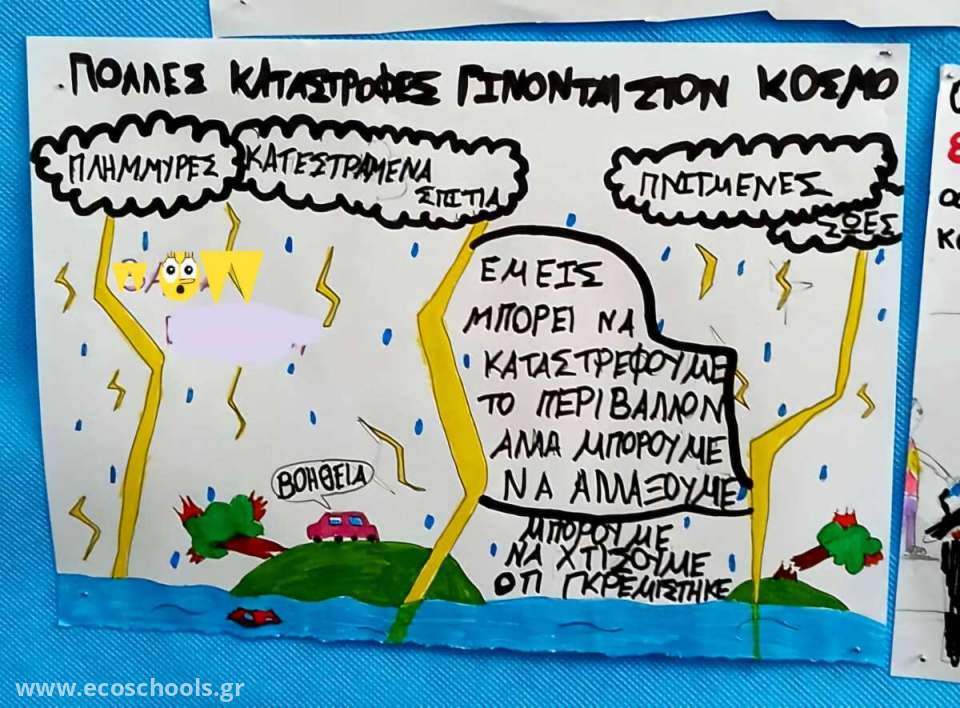 ΠΟΛΛΕΣ ΚΑΤΑΣΤΡΟΦΕΣ ΓΙΝΟΝΤΑΙ ΣΤΟΝ ΚΟΣΜΟ
ΠΛΗΜΜΥΡΕΣ
ΚΑΤΕΣΤΡΑΜΕΝΑ
ΣΠΙΤΙΑ
ΠΝΙΓΜΕΝΕΣ
ΖΩΕΣ
ΕΜΕΙΣ
ΜΠΟΡΕΙ ΝΑ
ΚΑΤΑΣΤΡΕΦΟΥΜΕ
ΤΟ ΠΕΡΙΒΑΛΛΟΝ
ΑΛΛΑ ΜΠΟΡΟΥΜΕ
ΝΑ ΑΛΛΑΞΟΥΜΕ
ΜΠΟΡΟΥΜΕ
ΝΑ ΧΤΙΖΟΥΜΕ
ΟΤΙ ΓΚΡΕΜΙΣΤΗΚΕ
ΒΟΗΘΕΙΑ
www.ecoschools.gr